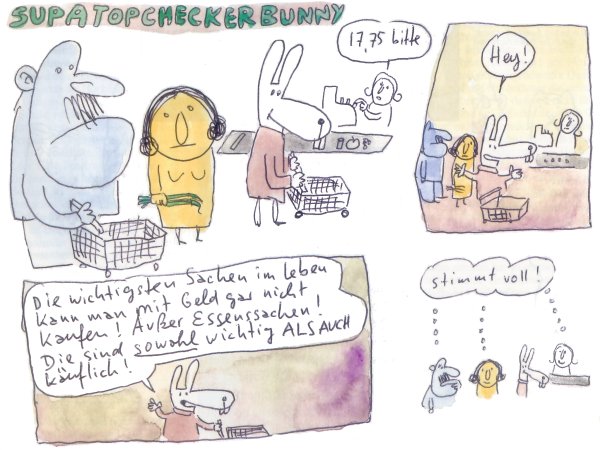 SUPATOPCHECKERBUNNY
17,75 bitte
Hey!
Die wichtigsten Sachen im Leben
kann man mit Geld gar nicht
kaufen! Außer Essenssachen!
Die sind sowohl wichtig ALS AUCH
käuflich!
stimmt voll!